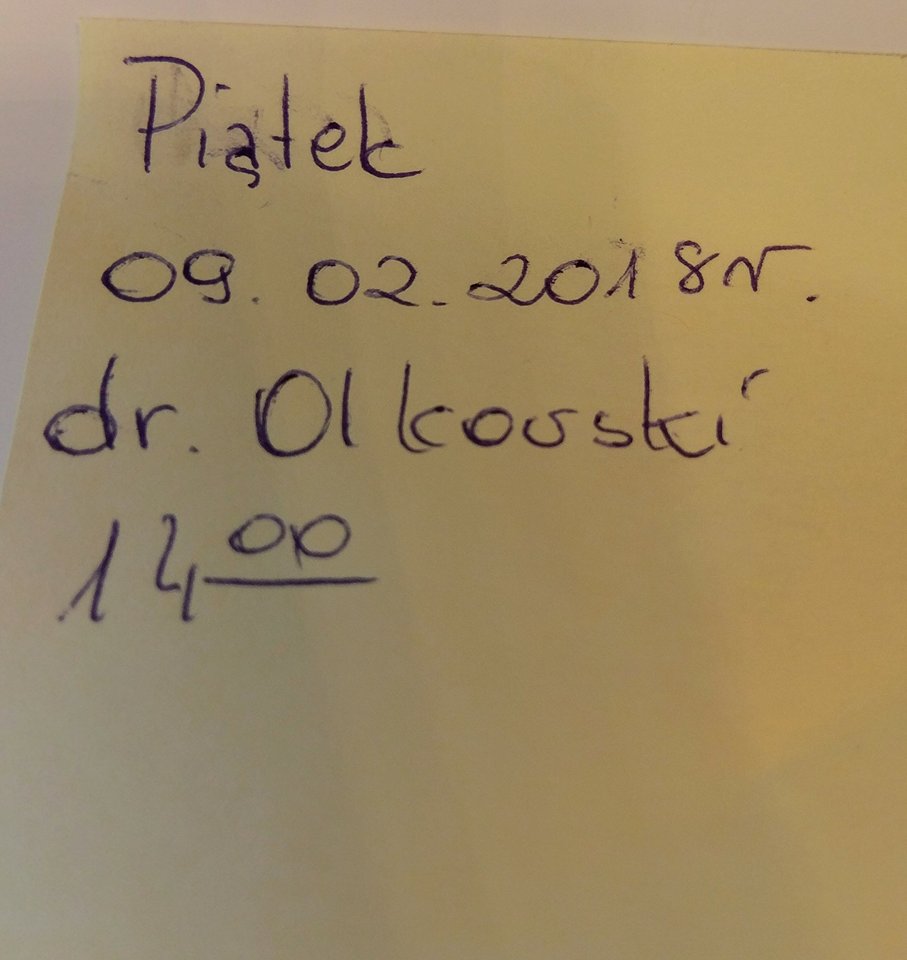 Piątek
09.02.2018r.
dr. Olkowski
14⁰⁰